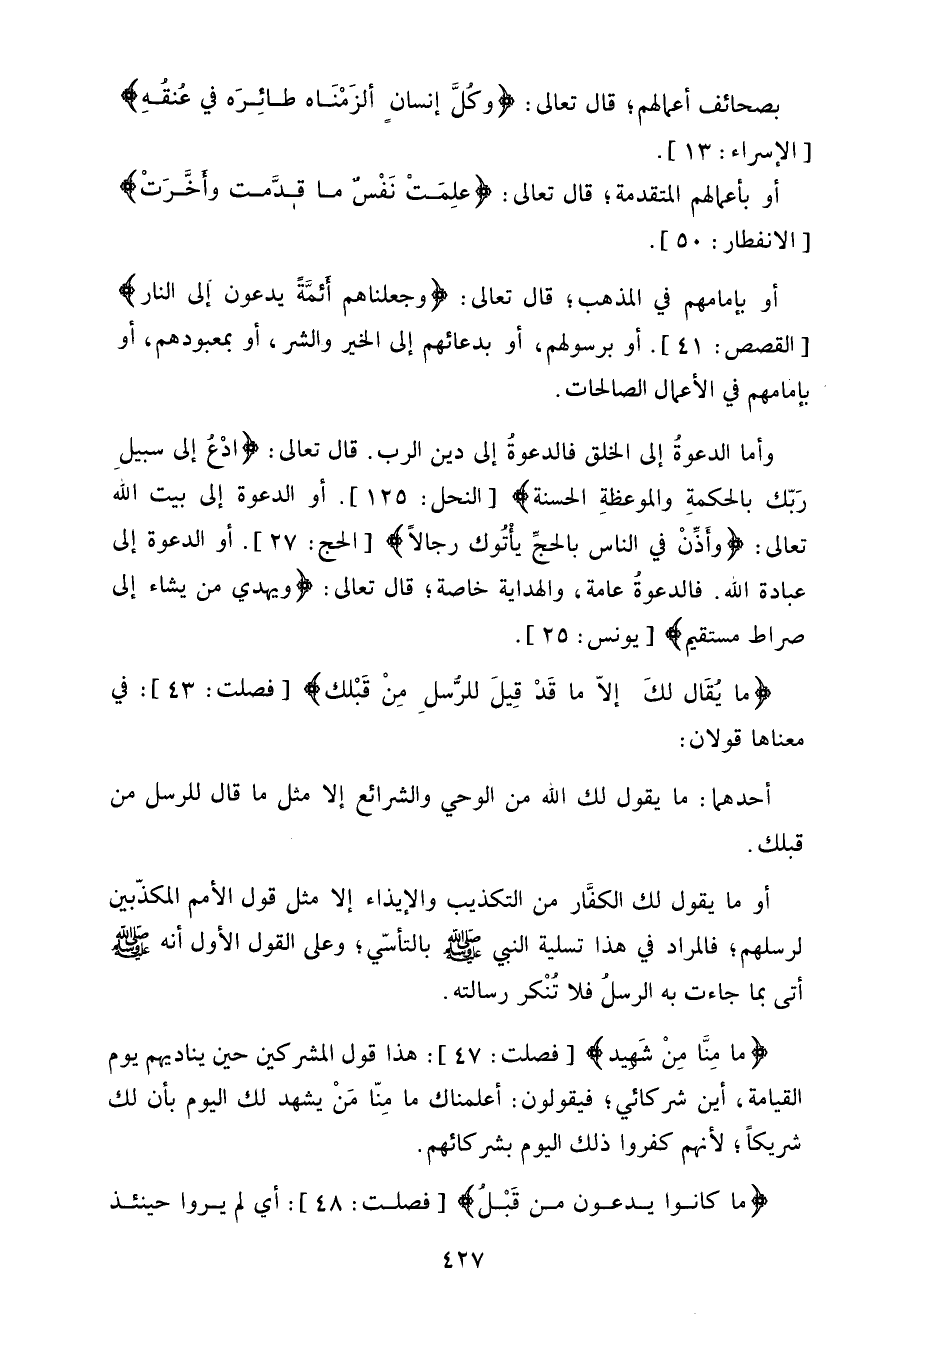 بصحائف أعمالهم؛ قال تعالى: ﴿وكُلَّ إنسانٍ ألزَمْنَاه طائِرَه في عُنقُهِ﴾
[الإسراء: ١٣].
أو بأعمالهم المتقدمة؛ قال تعالى: ﴿علِمَتْ نَفْسٌ ما قدَّمت وأَخَّرَتْ﴾
[الانفطار: ٥٠].
أو بإمامهم في المذهب؛ قال تعالى: ﴿وجعلناهم أَئمَّةً يدعون إلى النار﴾
[القصص: ٤١]. أو برسولهم، أو بدعائهم إلى الخير والشر، أو بمعبودهم، أو
بإمامهم في الأعمال الصالحات.
وأما الدعوةُ إلى الخلق فالدعوةُ إلى دين الرب. قال تعالى: ﴿ادْعُ إلى سبيلِ
رَبّك بالحكمةِ والموعظةِ الحسنة﴾ [النحل: ١٢٥]. أو الدعوة إلى بيت الله
تعالى: ﴿وأَذِّنْ في الناس بالحجِّ يأْتُوك رجالاً﴾ [الحج: ٢٧]. أو الدعوة إلى
عبادة الله. فالدعوةُ عامة، والهداية خاصة؛ قال تعالى: ﴿ويهدي من يشاء إلى
صراط مستقيم﴾ [يونس: ٢٥].
﴿ما يُقَال لكَ إلاّ ما قَدْ قِيلَ للرُّسلِ مِنْ قَبْلك﴾ [فصلت: ٤٣]: في
معناها قولان:
أحدهما: ما يقول لك الله من الوحي والشرائع إلا مثل ما قال للرسل من
قبلك.
أو ما يقول لك الكفَّار من التكذيب والإيذاء إلا مثل قول الأمم المكذّبين
لرسلهم؛ فالمراد في هذا تسلية النبي ﷺ بالتأسّي؛ وعلى القول الأول أنه ﷺ
أتى بما جاءت به الرسلُ فلا تُنْكر رسالته.
﴿ما مِنَّا مِنْ شَهِيد﴾ [فصلت: ٤٧]: هذا قول المشركين حين يناديهم يوم
القيامة، أين شركائي؛ فيقولون: أعلمناك ما مِنّا مَنْ يشهد لك اليوم بأن لك
شريكاً؛ لأنهم كفروا ذلك اليوم بشركائهم.
﴿ما كانوا يدعون من قَبْلُ﴾ [فصلت: ٤٨]: أي لم يروا حينئذ
٤٢٧